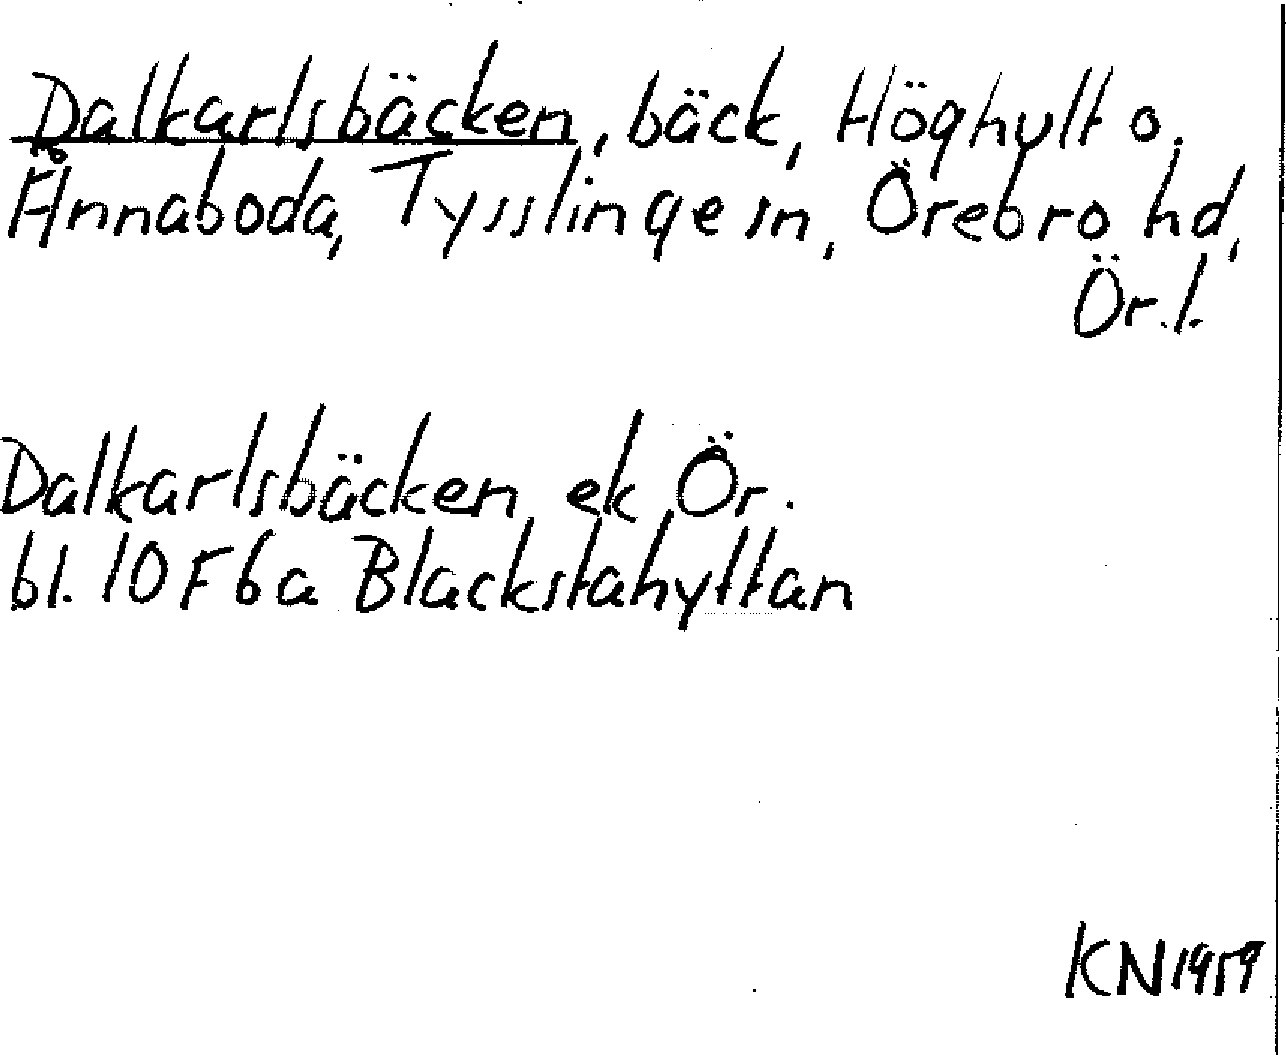 Dalkarlsbäcken, bäck, Höghult o.
Ånnaboda, Tysslinge sn, Örebro hd,
Ör. l.
Dalkarlsbäcken ek Ör.
bl. 10 F 6 a Blackstahyttan
KN 1959